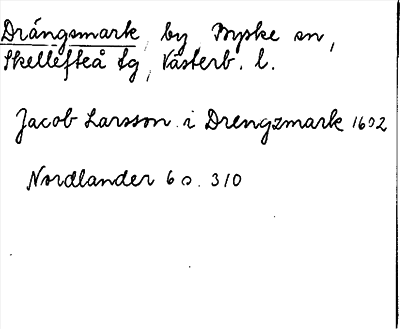 Drängsmark, by, Byske sn,
Skellefteå tg, Västerb. l.
Jacob Larsson i Drengzmark 1602
Nordlander 6 s. 310